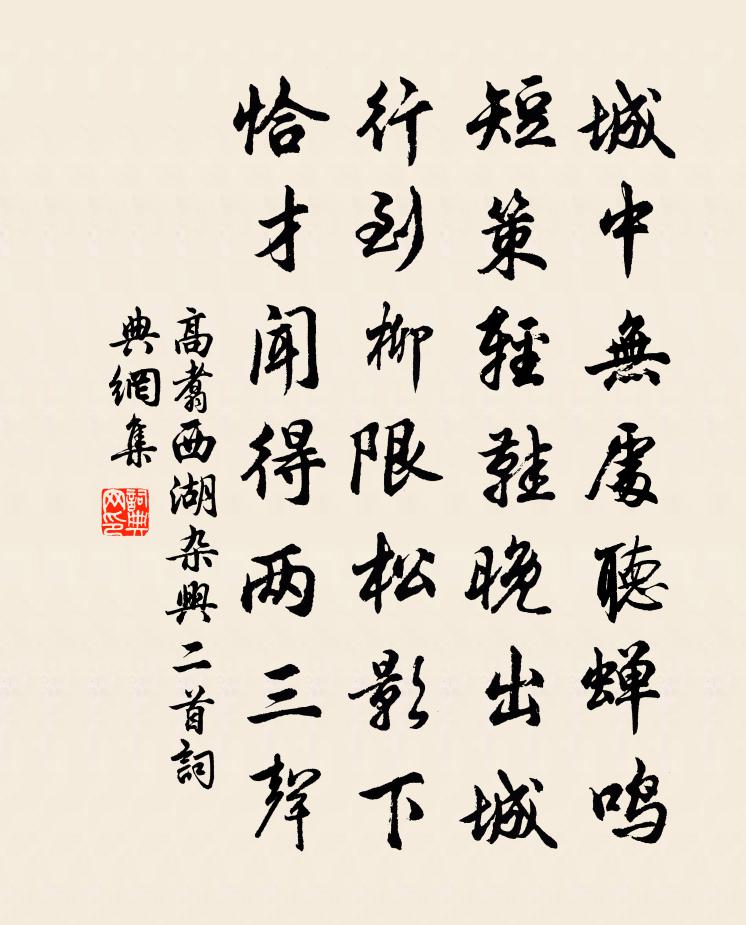 城中無處聽蟬鳴
短策輕鞋晚出城
行到柳限松影下
恰才聞得两三聲
高翥西湖杂興二首詞
典網集
詞典网印